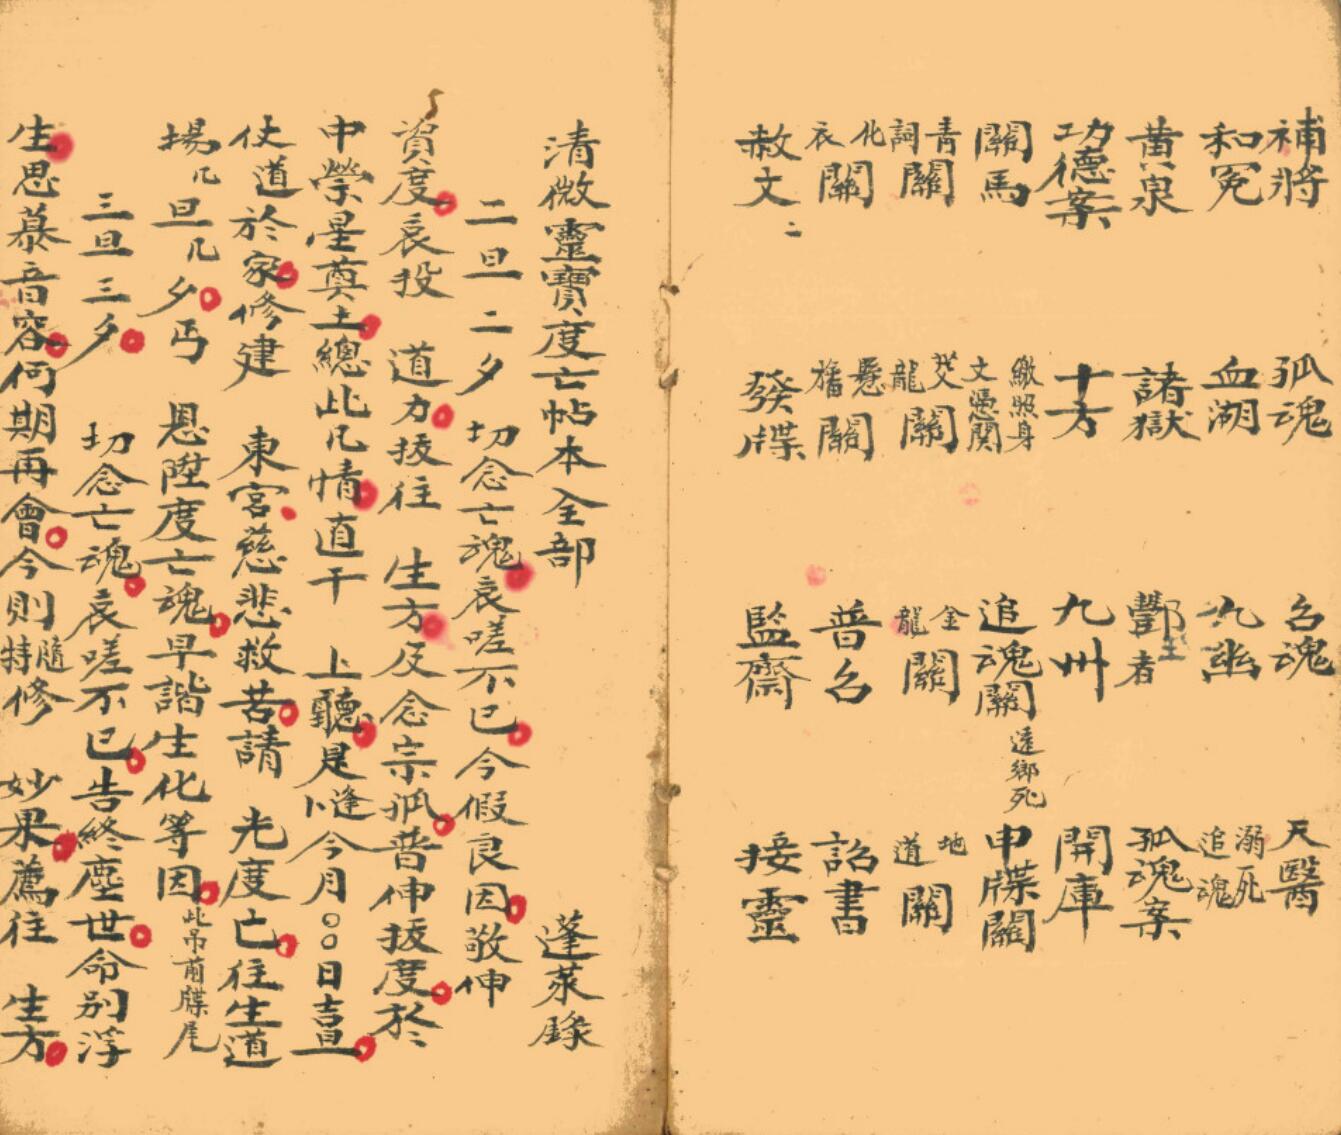 補將 孤魂 召魂 天醫
和冤 血湖 九幽 溺死追魂
黃泉 諸獄 酆者 孤魂案
功德案 十方 九州 開庫
關馬 繳照身文憑関 追魂關 遠鄉死 申牒關
青詞關 焚龍關 金龍關 地道關
化衣關 懸旛關 普召 詔書
赦文 發牒 監齋 接靈
清微靈寶度亡帖本全部 蓬萊錄
二旦二夕 切念亡魂哀嗟不已今假良因敬伸
資度哀投 道力拔往 生方及念宗派普伸拔度於
中榮星奠土總此凡情道干 上聽是卜逢今月○○日吉旦
仗道於家修建 東宮慈悲救苦請 光度亡往生道
場几旦几夕丐 恩陞度亡魂早諧生化等因此吊前牒尾
三旦三夕 切念亡魂哀嗟不已告終塵世命別浮
生思慕音容何期再會今則特隨修 妙果薦往 生方